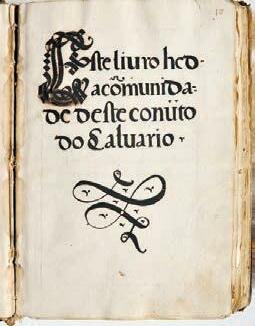 Este liuro he d-
a cõmunida=
de deste conuẽto
do Caluario ·